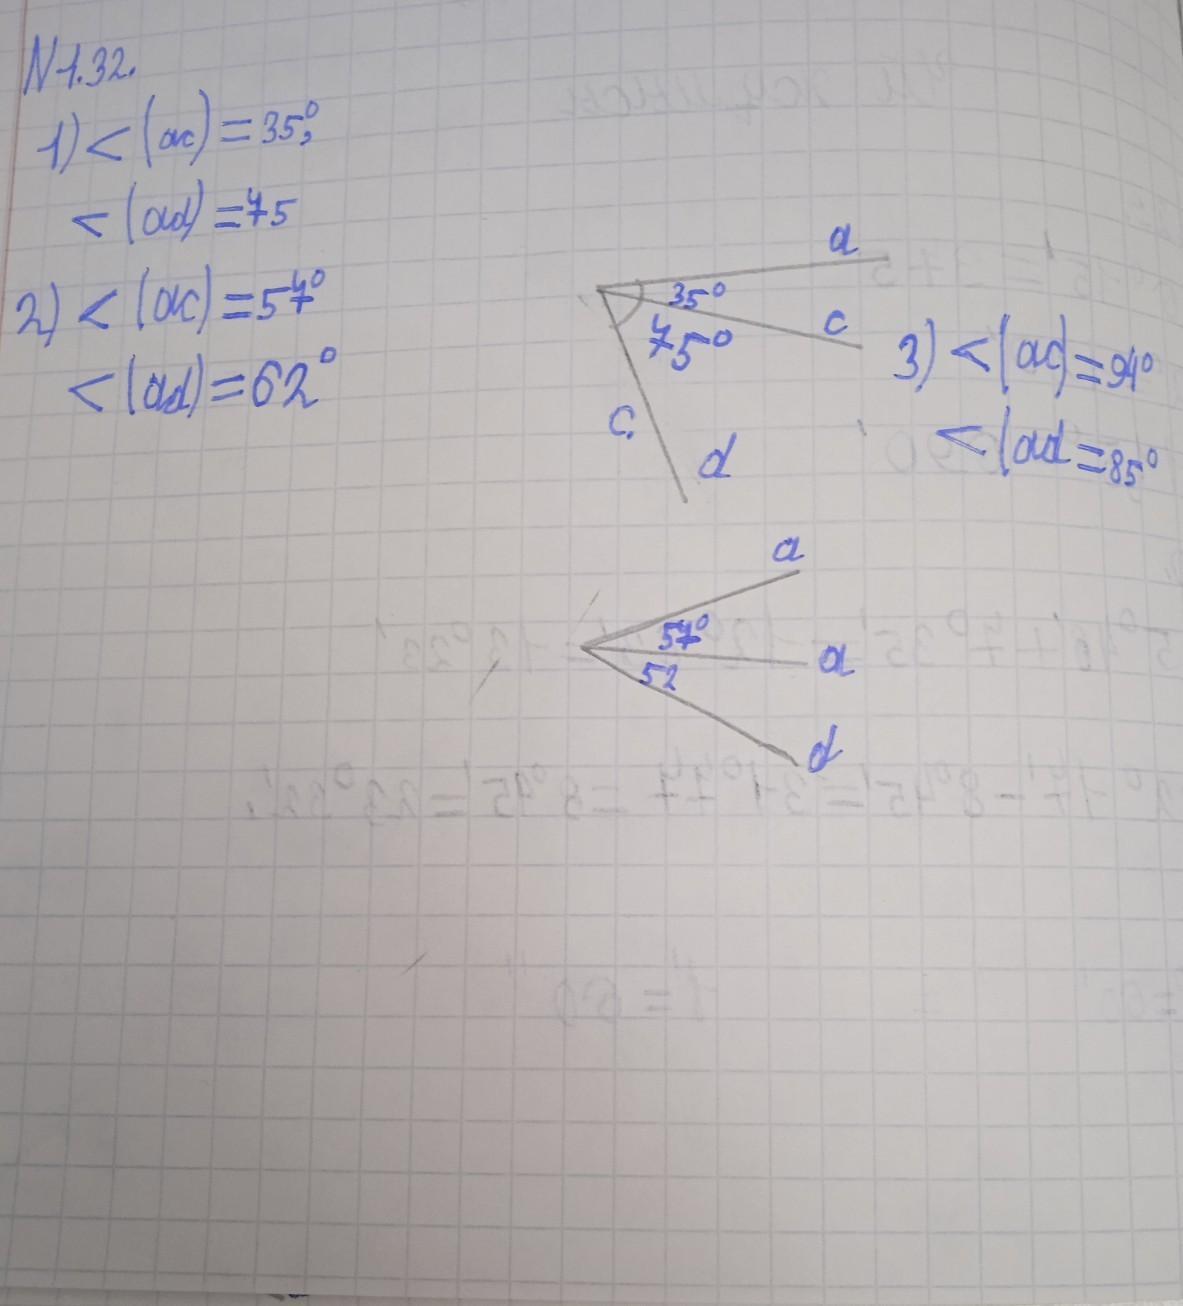 N 1.32.
1) < (ac) = 35°,
< (ad) = 75
2) < (ac) = 57°
< (ad) = 62°
a
35°
c
75°
c.
d
3) < (ac) = 94°
< (ad = 85°
a
57°
a
52
d